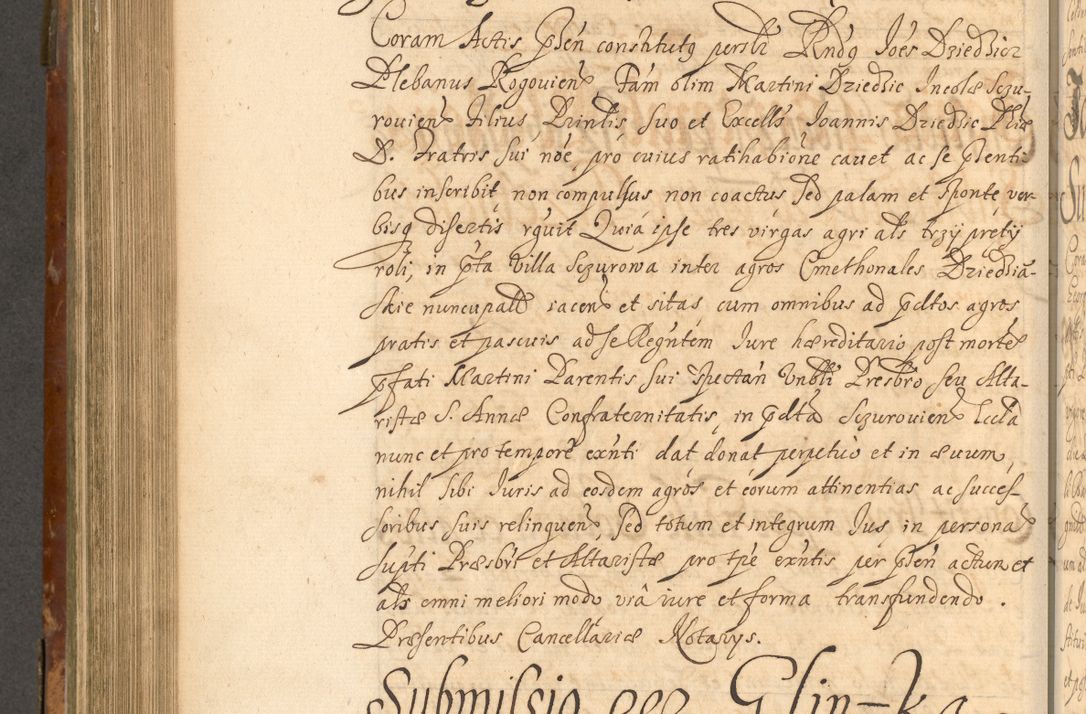 Coram Actis pn̄ constitutq persłr Rndq Joēs Dziedzicz
Plebanus Rogovien̄, Fam olim Martini Dziedzic Incolæ Szzu-
rovien̄ filius Printis, suo et Excells Joannis Dziedzic Phiæ
D. Fratris sui nōe, pro cuius ratihabiōne cavet ac se pn̄ti-
bus inscribit, non compulsus non coactus sed palam et sponte ver-
bisq disertis rguit Quia ipse tres virgas agri als trzy pręty
roli, in pt̄a Villa Szzurowa inter agros Cmethonales Dziedziń-
skie nuncupatt iacen̄ et sitas cum omnibus ad pdtos agros
pratis et pascuis ad se Regn̄tem Jure hæreditario post morte
pfati Martini Parentis sui spectan̄ Vnbli Presbro seu Alta-
ristæ S. Annæ Confraternitatis, in pdtā Szzurovien̄ Eccla
nunc et pro tempore exn̄ti dat donat perpetuo et in ævum,
nihil sibi Juris ad eosdem agros et eorum attinentias ac succes-
soribus suis relinquen̄, sed totum et integrum Jus in persona
supti Præsbri et Altaristæ pro tpe exn̄tis per pn̄ actum et
als omni meliori modo viâ iure et forma transfundendo.
Præsentibus Cancellariæ Notarys.
Submissio per Glin-ka